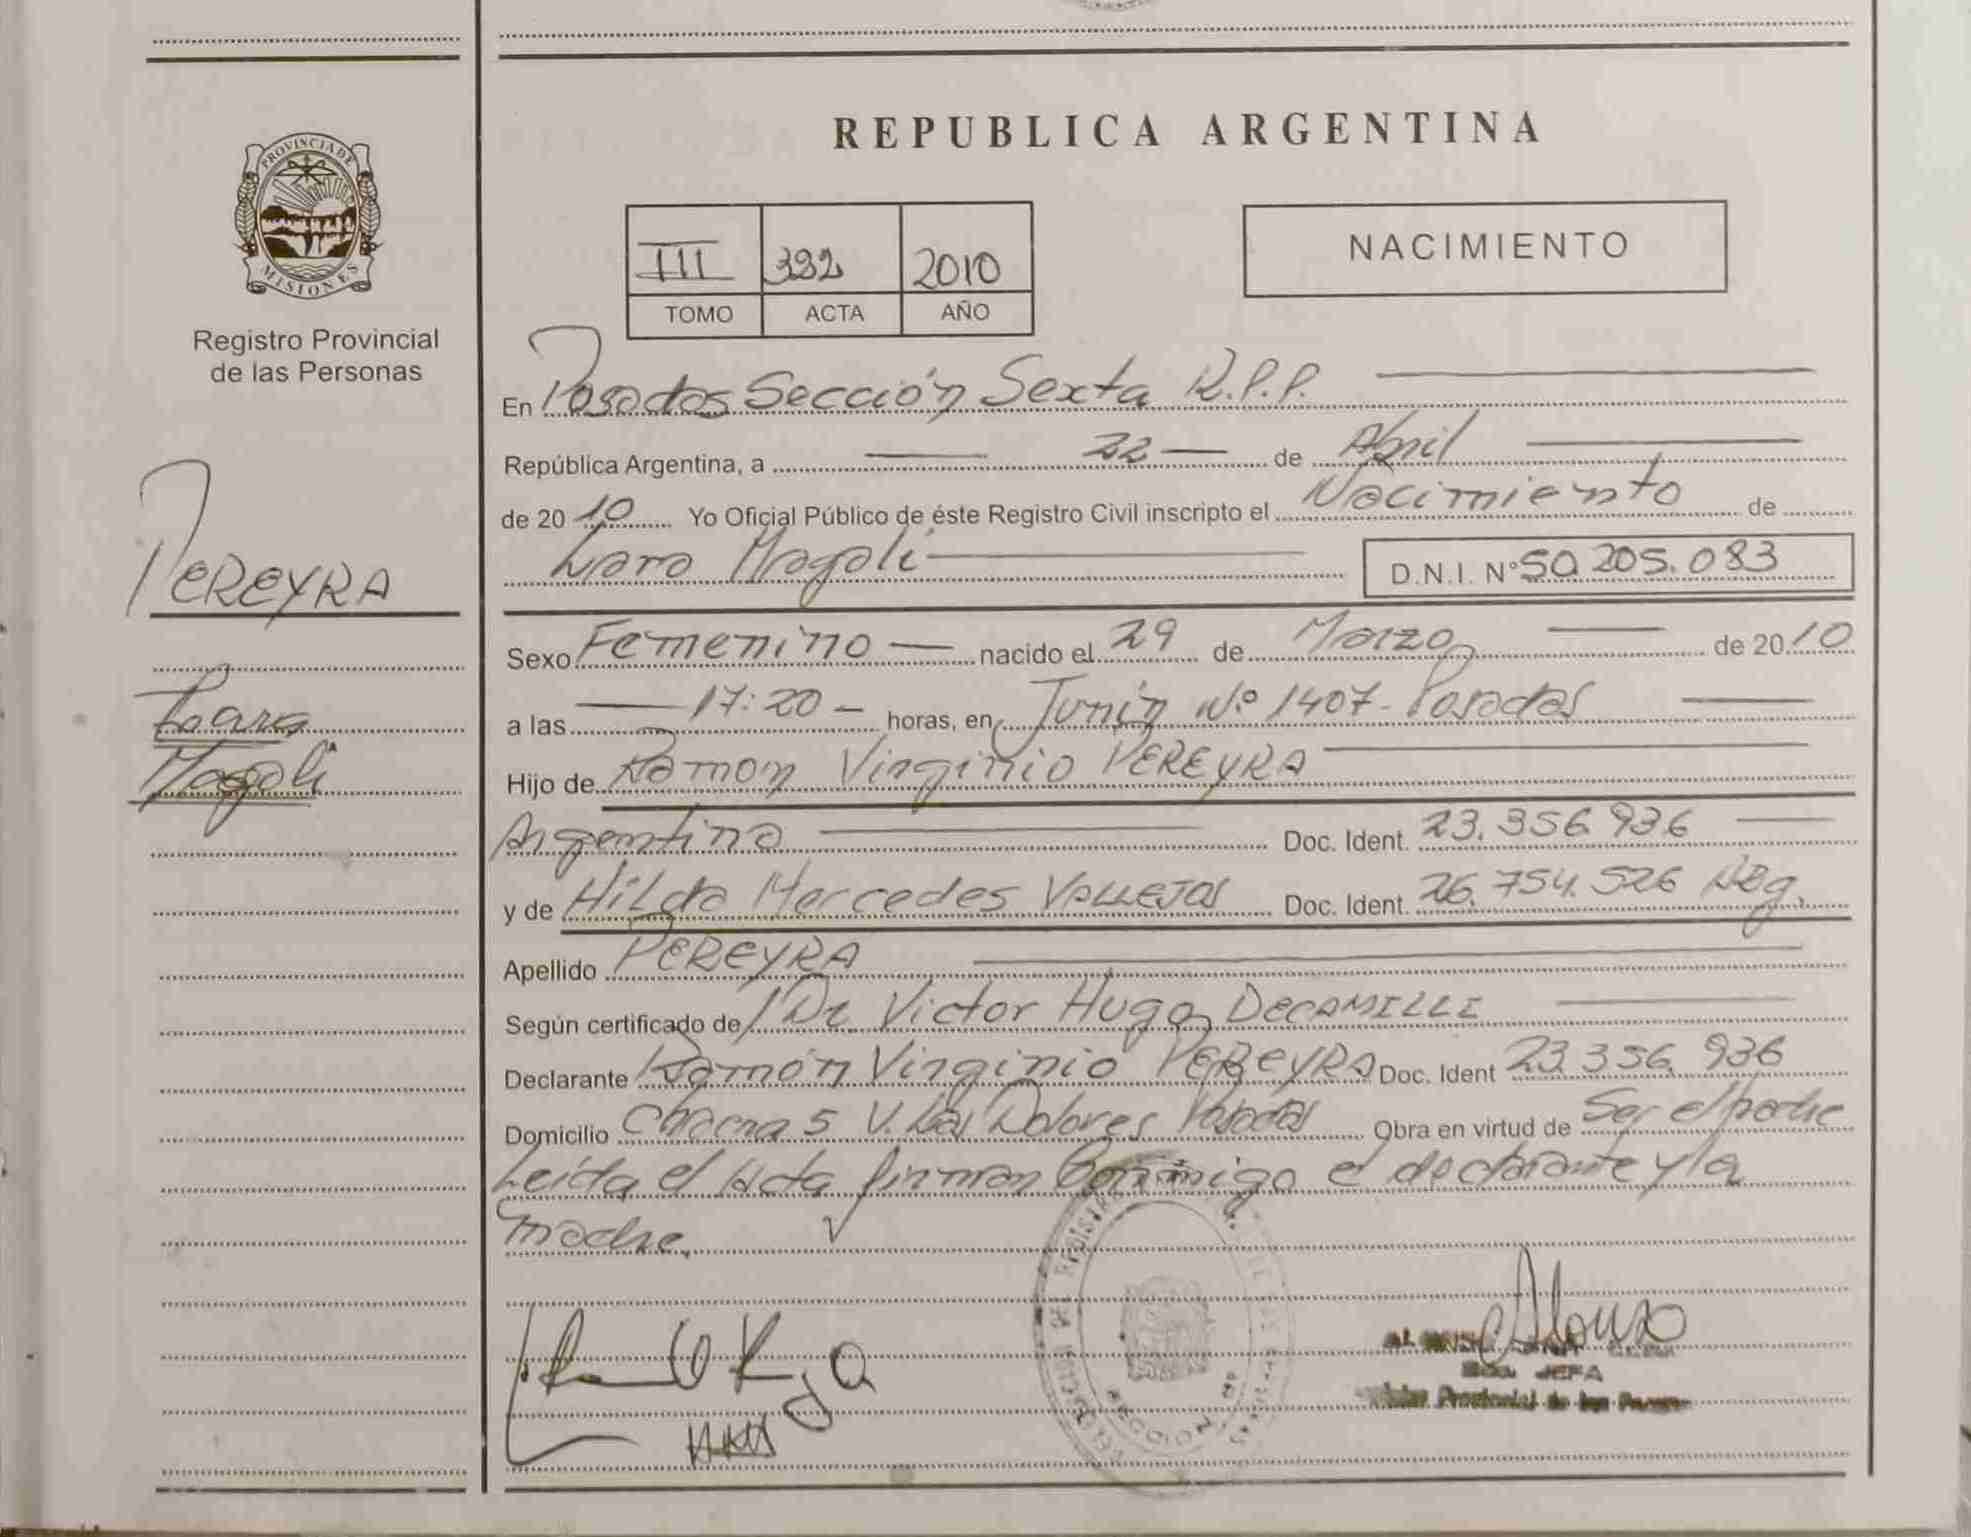 REPUBLICA ARGENTINA
PROVINCIA DE
MISIONES
Registro Provincial
de las Personas
III 392 2010
TOMO ACTA AÑO
NACIMIENTO
PEREYRA
Lara
Magali
En Posadas Sección Sexta R.P.P.
República Argentina, a 22 de Abril
de 2010 Yo Oficial Público de éste Registro Civil inscripto el Nacimiento de
Lara Magali D.N.I. N° 50.205.083
Sexo Femenino nacido el 29 de Marzo de 2010
a las 17:20 horas, en Junín N° 1407 - Posadas
Hijo de Ramon Virginio PEREYRA
Argentino Doc. Ident. 23.356.936
y de Hilda Mercedes VALLEJOS Doc. Ident. 26.754.526 Arg.
Apellido PEREYRA
Según certificado de Dr. Victor Hugo DECAMILLI
Declarante Ramón Virginio PEREYRA Doc. Ident 23.356.936
Domicilio Chacra 5 V. Las Dolores Posadas Obra en virtud de Ser el padre
Leida el Acta firman Conmigo el declarante y la
madre.
JEFA
Provincial de las